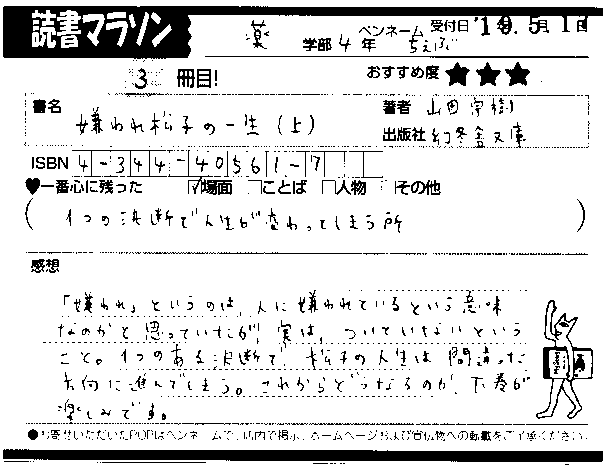 読書マラソン
薬 学部 4 年 ペンネーム ちぇぶ 受付日 '19.5月17日
3 冊目! おすすめ度 ★★★
書名 嫌われ松子の一生(上)
著者 山田宗樹
出版社 幻冬舎文庫
ISBN 4-344-40561-7
♥一番心に残った ☑場面 □ことば □人物 □その他
(1つの決断で人生が変わってしまう所)
感想
「嫌われ」というのは、人に嫌われているという意味
なのかと思っていたが、実は、ついていないという
こと。1つのある決断で、松子の人生は間違った
方向に進んでしまう。これからどうなるのか、下巻が
楽しみです。
●お寄せいただいたPOPはペンネームで、店内で掲示、ホームページおよび宣伝物への転載をご了承ください。